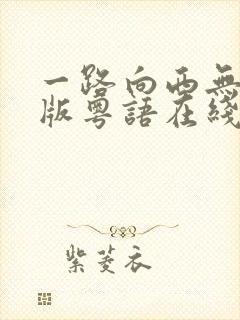 一路向西無
版粵語在綫
紫菱衣